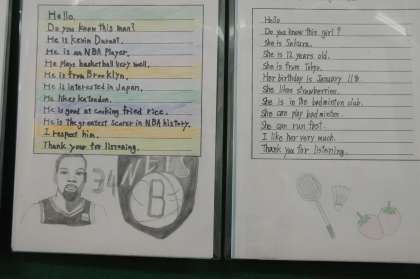 Hello.
Do you know this man?
He is Kevin Durant.
He is an NBA Player.
He plays basketball very well.
He is from Brooklyn.
He is interested in Japan.
He likes
He is good at cooking fried rice.
He is the greatest scorer in NBA history.
I respect him.
Thank you for listening.
NETS
B
Hello
Do you know this girl?
She is
She is 12 years old.
She is from Tokyo.
Her birthday is January 11th.
She likes strawberries.
She is in the badminton club.
She can play badminton.
She can run fast.
I like her very much.
Thank you for listening.